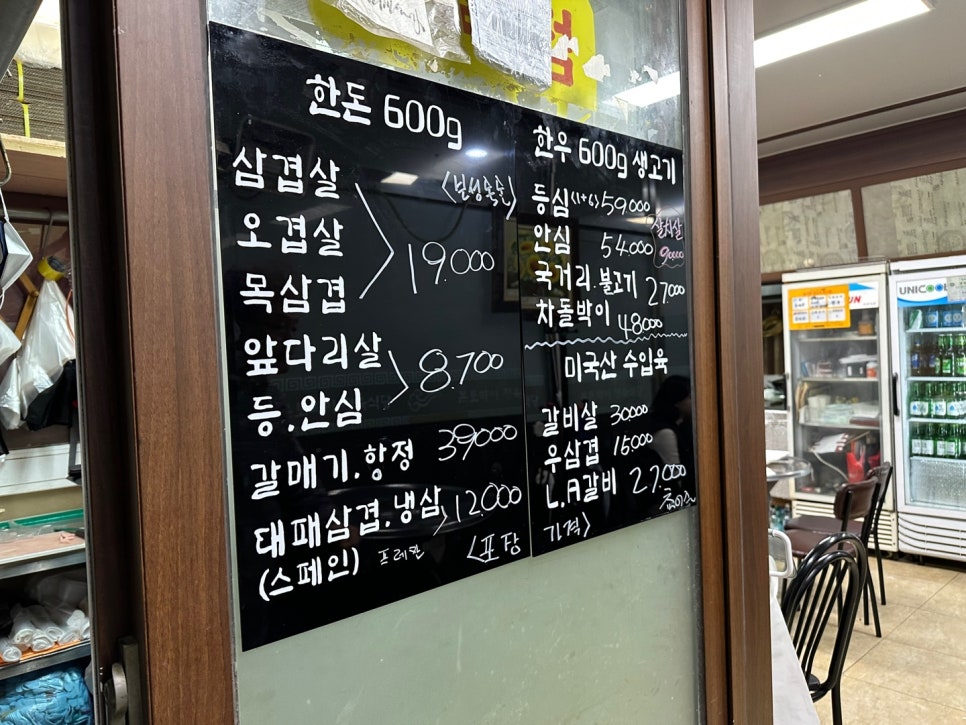 한돈 600g
<보성녹돈>
삼겹살
오겹살
목삼겹
19.000
앞다리살
등.안심
8.700
갈매기.항정 39000
대패삼겹.냉삼 12000
(스페인) 프레판 <포장
한우 600g 생고기
등심(1+6) 59.000
살치살
90000
안심 54.000
국거리.불고기 27000
차돌박이 48000
미국산 수입육
갈비살 30000
우삼겹 15.000
L.A갈비 27.000
초이스
가격>
UNICOOL